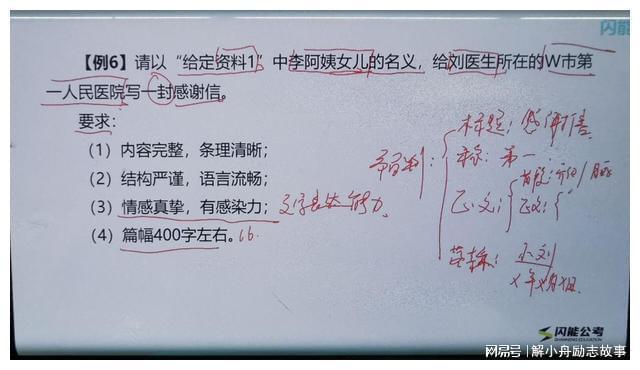 闪能
【例6】请以“给定资料1”中李阿姨女儿的名义，给刘医生所在的W市第
一人民医院写一封感谢信。
要求：
（1）内容完整，条理清晰；
（2）结构严谨，语言流畅；
（3）情感真挚，有感染力；文字表达能力
（4）篇幅400字左右。16.
标题：感谢信
称：第一
正文：
落款：小刘
x年x月x日
闪能公考
网易号 | 解小舟励志故事